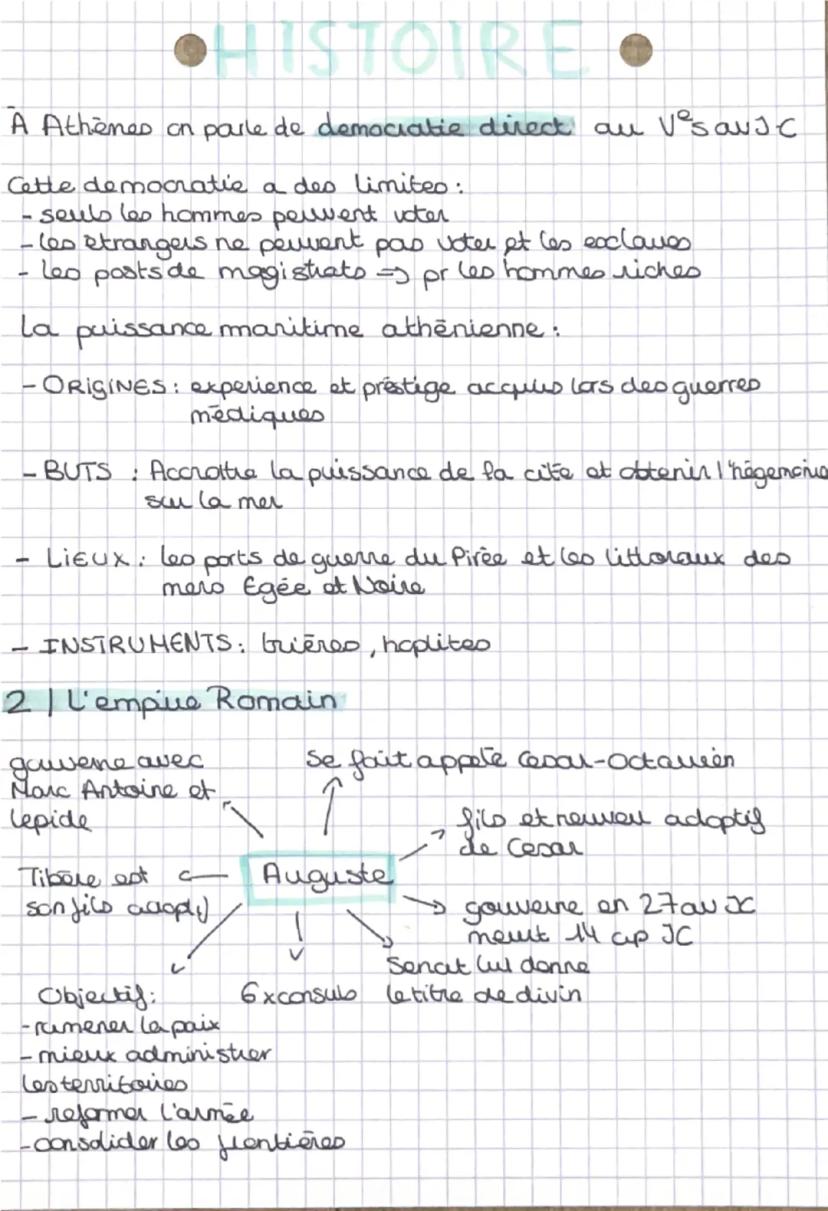 HISTOIRE
À Athènes on parle de democratie direct au Vᵉs av JC
Cette democratie a des limites :
- seuls les hommes peuvent voter
- les étrangers ne peuvent pas voter et les esclaves
- les posts de magistrats => pr les hommes riches
La puissance maritime athénienne :
- ORIGINES : experience et préstige acquis lors des guerres
médiques
- BUTS : Accroître la puissance de la cité et obtenir l'hégémonie
sur la mer
- LIEUX : les ports de guerre du Pirée et les littoraux des
mers Egée et Noire
- INSTRUMENTS : trières, hoplites
2 | L'empire Romain
gouverne avec
Marc Antoine et
Lepide
Se fait appelé Cesar-Octavien
fils et neuveu adoptif
de Cesar
Auguste
Tibère est
son fils adoptif
gouverne en 27 av JC
meurt 14 ap JC
Senat lui donne
le titre de divin
6x consuls
Objectif :
- ramener la paix
- mieux administrer
les territoires
- reformer l'armée
- consolider les frontières